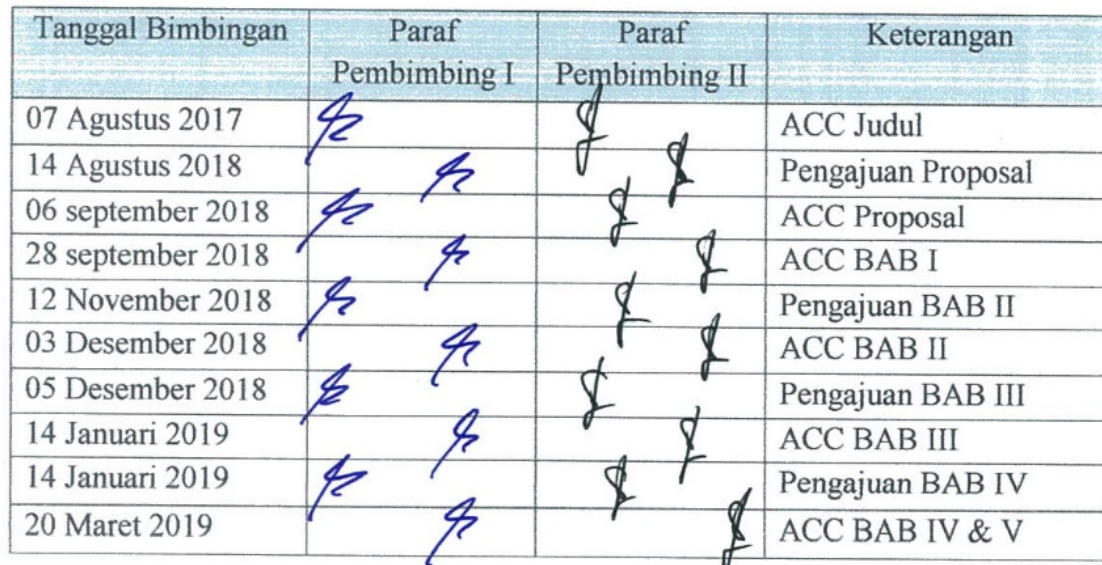 Tanggal Bimbingan Paraf Pembimbing I Paraf Pembimbing II Keterangan
07 Agustus 2017 ACC Judul
14 Agustus 2018 Pengajuan Proposal
06 september 2018 ACC Proposal
28 september 2018 ACC BAB I
12 November 2018 Pengajuan BAB II
03 Desember 2018 ACC BAB II
05 Desember 2018 Pengajuan BAB III
14 Januari 2019 ACC BAB III
14 Januari 2019 Pengajuan BAB IV
20 Maret 2019 ACC BAB IV & V